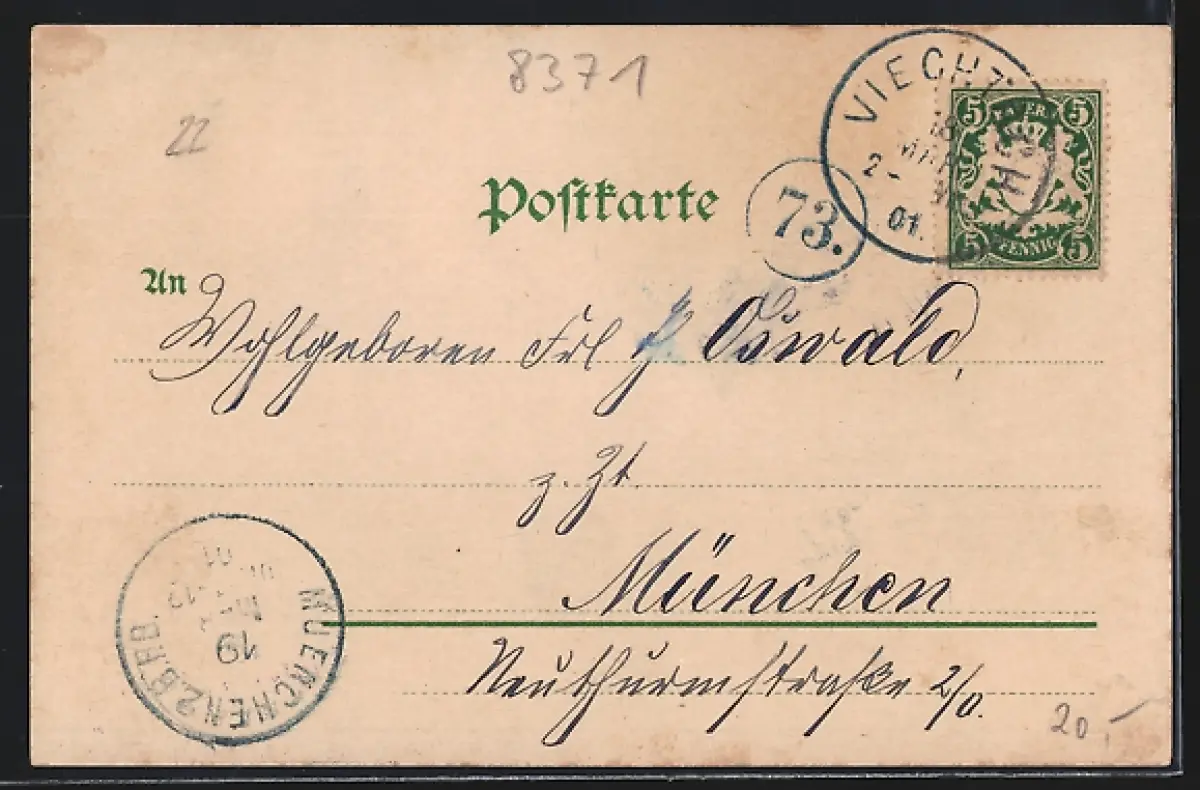 8371
22
Postkarte
73.
VIECHT
18
MAR
2-
01.
5 BAYERN 5
5 PFENNIG 5
An
Wohlgeboren Frl Oswald,
z. Zt.
München
Neuthurmstraße 2/0.
MUENCHEN 2.B.HB.
19
01
20,-